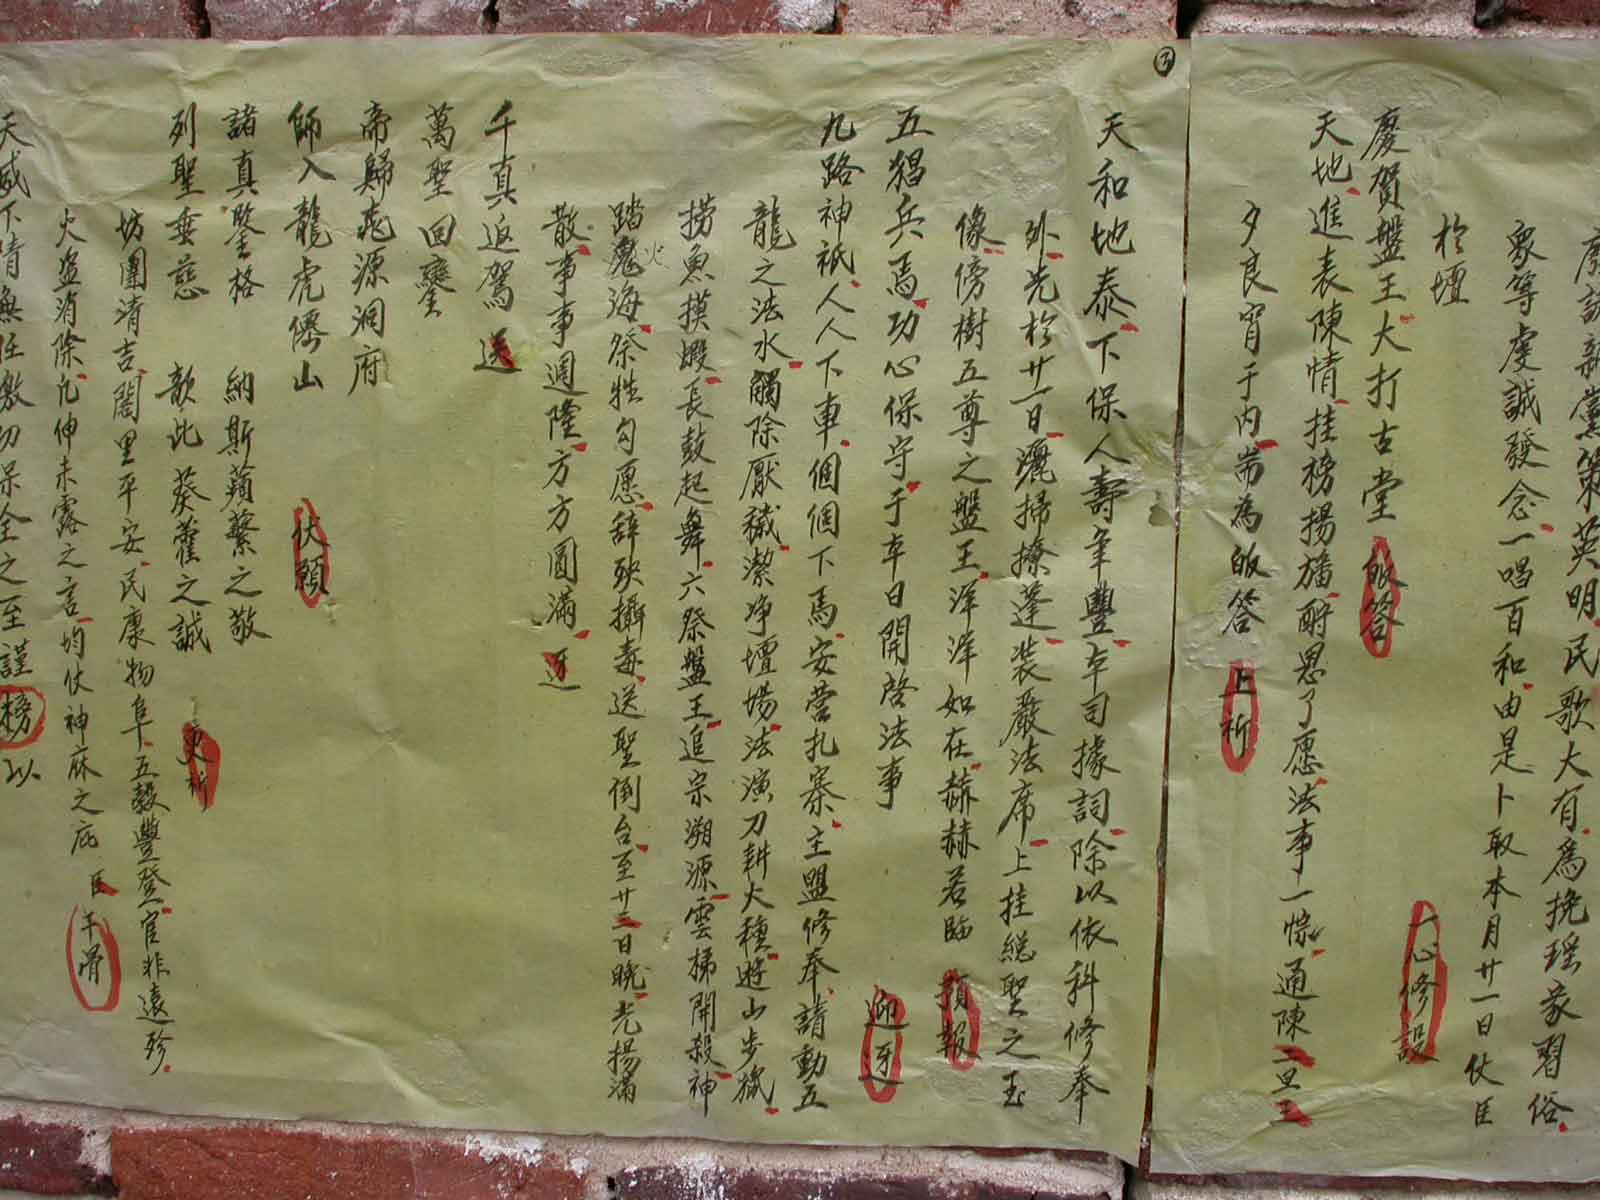 訴新黨策英明民歌大有為挽瑶家習俗
衆等虔誠發念一唱百和由是卜取本月廿一日仗臣
於壇 一心修設
慶贺盤王大打古堂 皈答
天地進表陳情挂榜揚旛酧恩了愿法事一悰通陳二旦三
夕良宵于内耑為皈答 上祈
③
天和地泰下保人壽年豐本司據詞除以依科修奉
外先於廿一日灑掃撩蓬裝嚴法席上挂総聖之玉
像傍樹五尊之盤王洋洋如在赫赫若臨 預報
五猖兵馬功心保守于本日開啓法事 迎迓
九路神祇人人下車個個下馬安营扎寨主盟修奉請動五
龍之法水觸除厭穢潔净壇場法演刀耕火種遊山步獵
捞魚摸蝦長鼓起舞六祭盤王追宗溯源雲梯開殺神
踏火海祭牲勾愿辞殃攝毒送聖倒台至廿三日晚光揚滿
散事事週隆方方圓滿 迓
千真返駕 送
萬聖回鑾
帝歸兆源洞府
師入龍虎儕山 伏願
諸真鍳格 納斯蘋蘩之敬
列聖垂慈 歆此葵藿之誠 更祈
坊圍清吉閤里平安民康物阜五穀豐登官非遠殄
火盗消除凢伸未露之言均仗神庥之庇 臣干冒
天威下情無任激切保全之至謹榜以